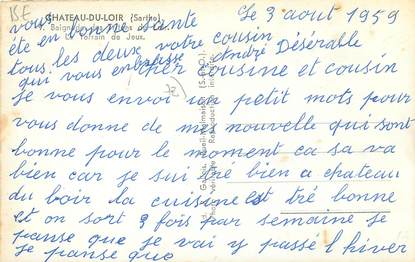 CHATEAU-DU-LOIR (Sarthe)
Terrain de Jeux.
Le 3 août 1959
Cher cousine et cousin
je vous envoi un petit mots pour
vous donne de mes nouvelle qui sont
bonne pour le moment ca sa va
bien car je sui tré bien a chateau
du loir la cuisine est tré bonne
et on sort 3 fois par semaine je
panse que je vai y passé l'hiver
je panse que
vous
éte en bonne santé
tous les deux votre cousin
qui vous embrasse André Désérable